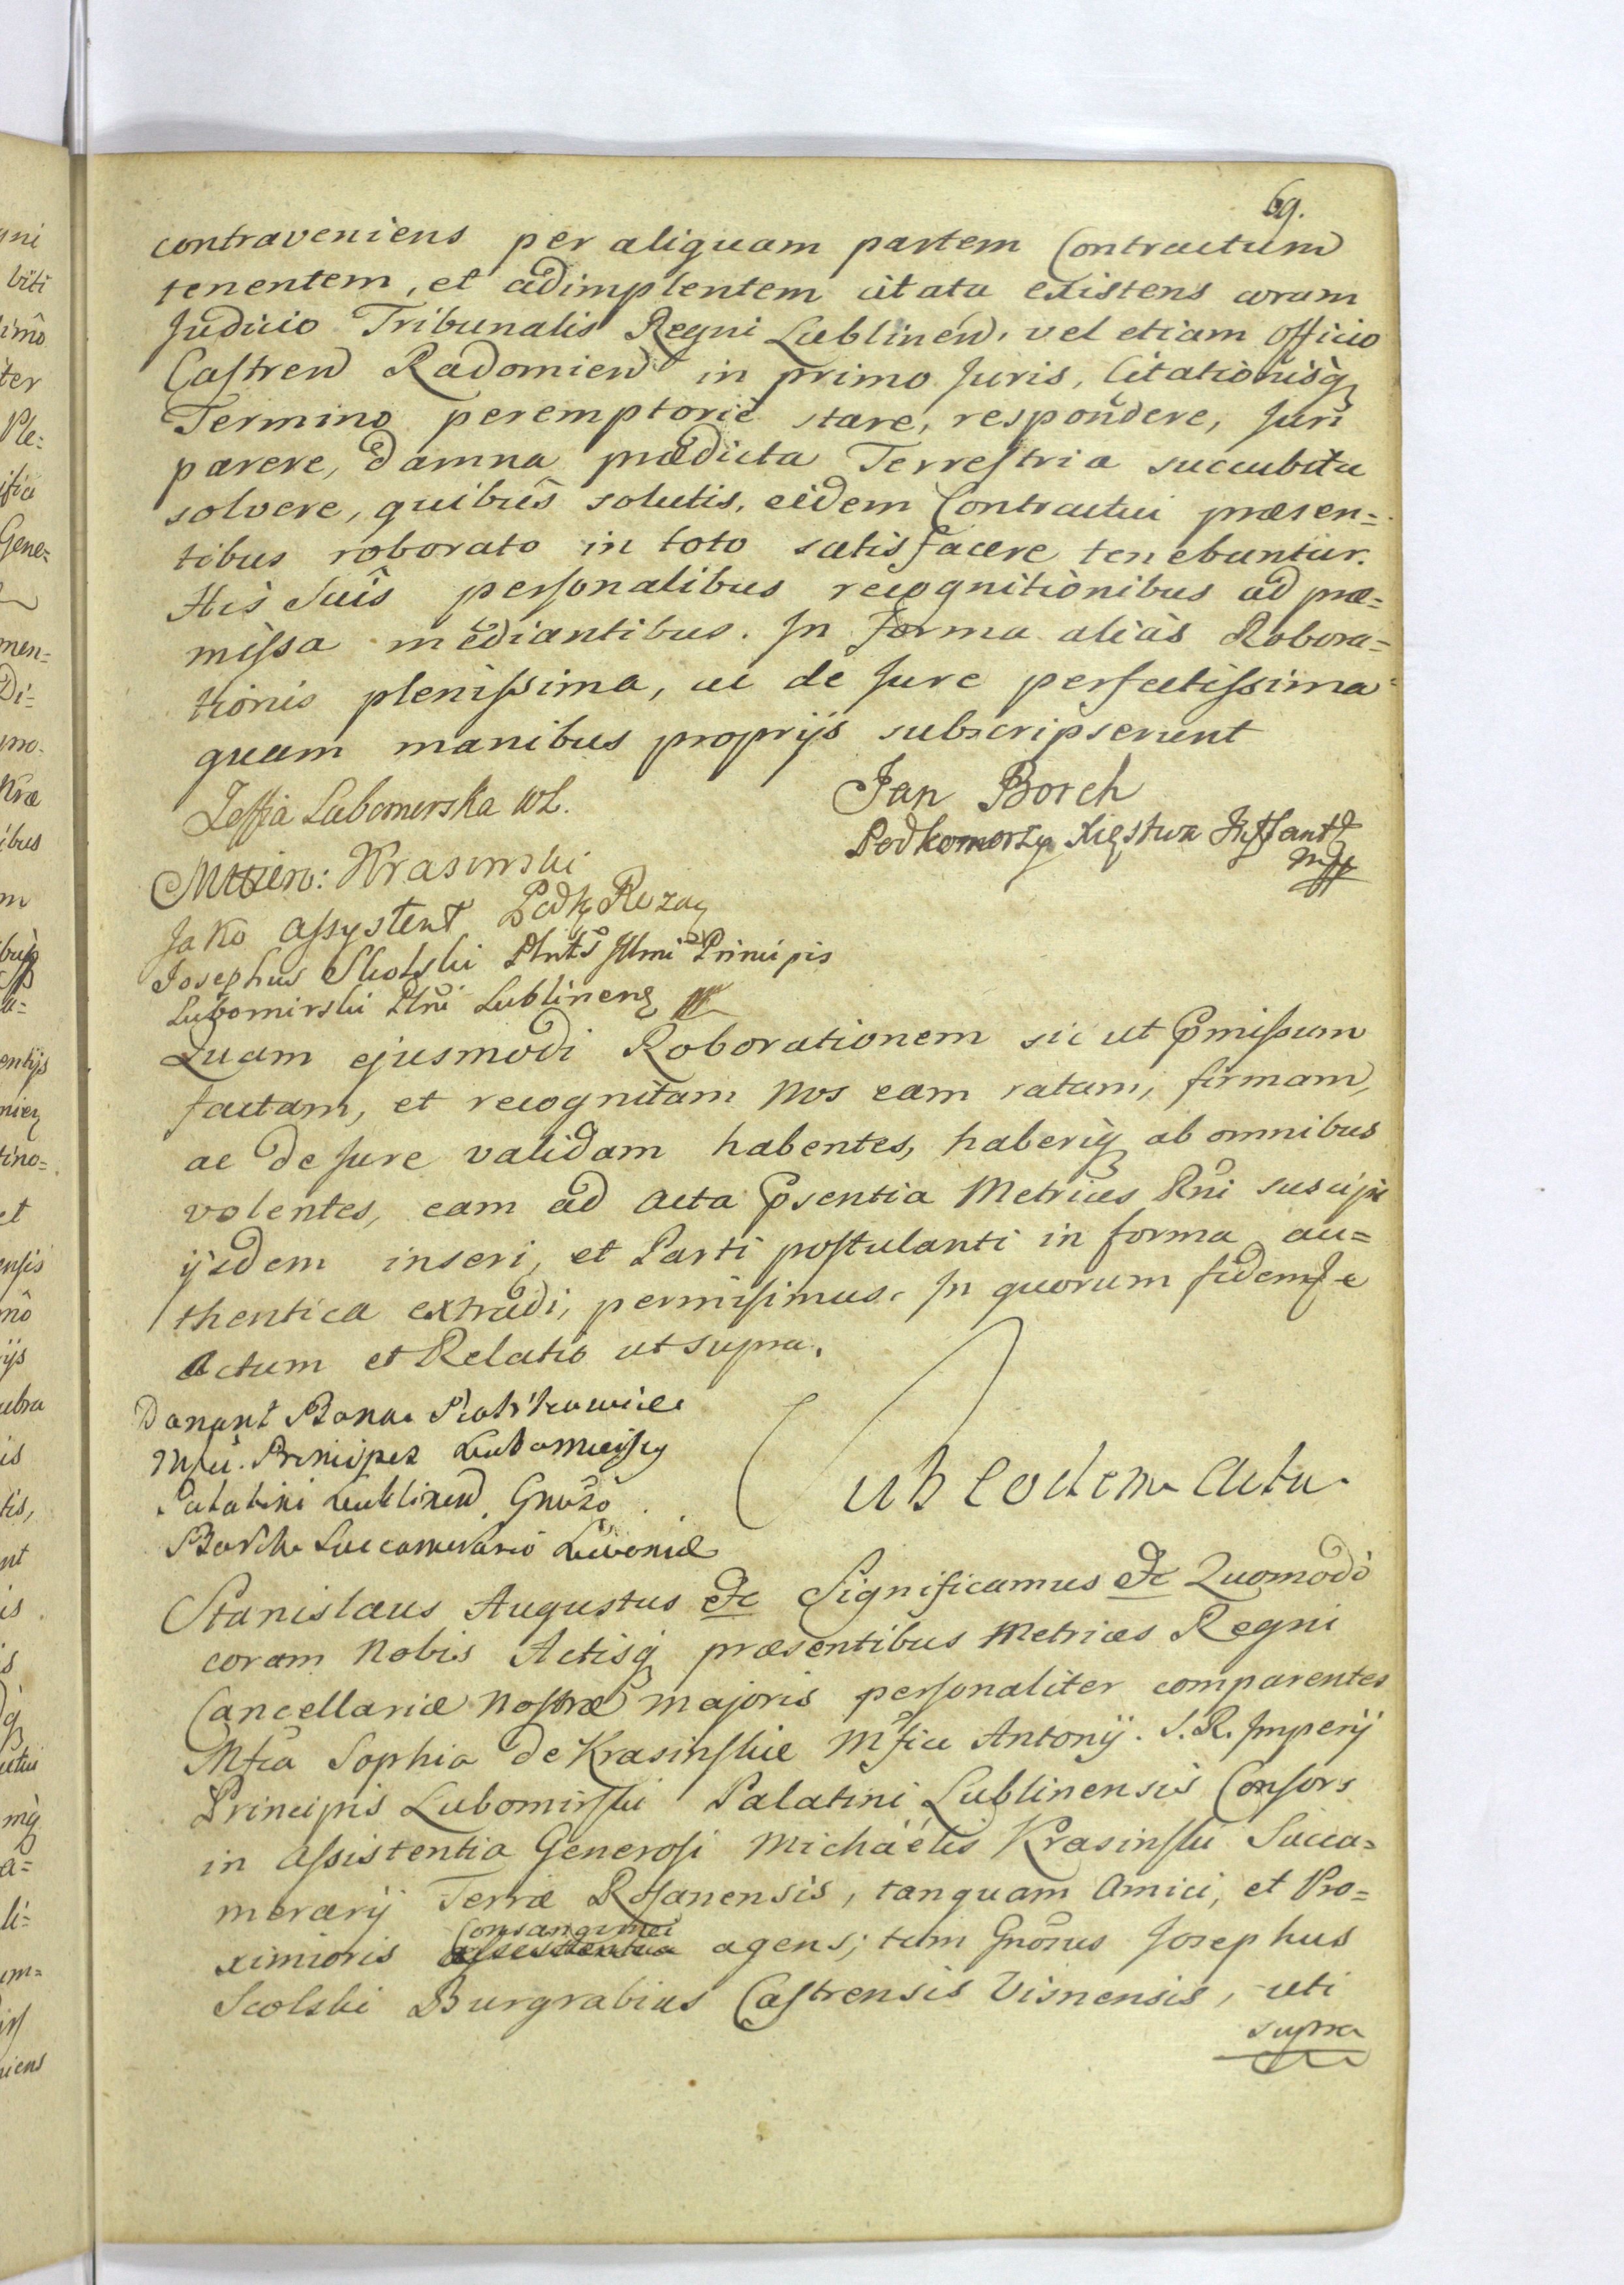 69.
contraveniens per aliquam partem Contractum
tenentem, et adimplentem citata existens coram
Judicio Tribunalis Regni Lublinen, vel etiam Officio
Castren Radomien in primo Juris, Citationisq
Termino peremptorie stare, respondere, Juri
parere, damna prædicta Terrestria succubitu
solvere, quibus solutis, eidem Contractui præsen=
tibus roborato in toto satisfacere tenebuntur.
His Suis personalibus recognitionibus ad præ=
missa mediantibus. In forma alias Robora=
tionis plenissima, ac de Jure perfectissima
quam manibus proprijs subscripserunt
Zoffia Lubomirska WL.
Jan Borch
Podkomorzy Xięstwa Inflantt
mpp
Krasinski
Jako assystent Podk Rozan
Josephus Skolski Plnts Illmi Principis
Lubomirski Plni Lublinens
Quam ejusmodi Roborationem sic ut pmissum
factam, et recognitam Nos eam ratam, firmam,
ac de Jure validam habentes, haberiq ab omnibus
volentes, eam ad Acta psentia Metrices Rni suscipi
ijsdem inseri, et Parti postulanti in forma au=
thentica extradi, permisimus. In quorum fidem
Actum et Relatio ut supra.
Donant Bona Piotrkowice
Mfci. Principes Lubomirscy
Palatini Lublinen. Gnoso
Borch Succamerario Livoniæ
Sub eodem Actu
Stanislaus Augustus &c Significamus &c Quomodo
coram Nobis Actisq præsentibus Metrices Regni
Cancellariæ Nostræ majoris personaliter comparentes
Mfca Sophia de Krasinskie Mfici Antonij S. R. Imperij
Principis Lubomirski Palatini Lublinensis Consors
in assistentia Generosi Michaëlis Krasinski Succa=
merarij Terræ Rosanensis, tanquam Amici, et Pro=
Consanguinei
ximioris agens; tum Gnosus Josephus
Scolski Burgrabius Castrensis Visnensis, uti
supra